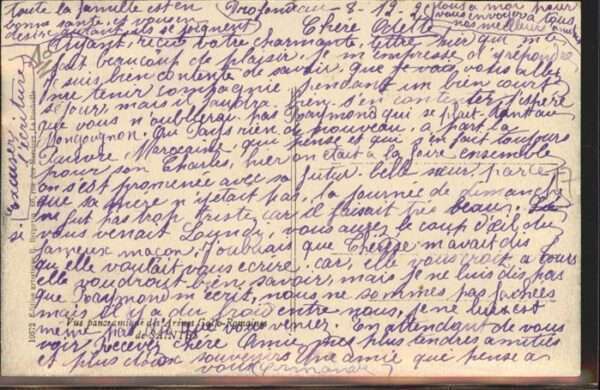 toute la famille est en
bonne santé et vous en
désire autant ils se joignent
à moi pour
vous envoyer à tous
nos meilleures amitiés
8-12-2
Chère Odette
Ayant reçu votre charmante lettre hier qui m'a
fait beaucoup de plaisir, je m'empresse d'y répondre
je suis bien contente de savoir que vous allez
me tenir compagnie pendant un bien court
séjour, mais il faudra bien s'en contenter j'espère
que vous n'oublierai pas Raymond qui se plait tant au
du Pays rien de nouveau, à part la
Pauvre Marceaine qui pense et qui s'en fait toujours
pour son Charles, hier on était à la foire ensemble
on s'est promenée avec sa futur belle sœur, parce
que sa mère n'y était pas, la journée de dimanche
ne fut pas trop triste car il faisait très beau,
si vous venait Lundy, vous aurez le coup d'œil du
fameux maçon, j'oubliais que Thérèse m'avait dis
qu'elle voulait vous écrire, car elle vous croit à tours
elle voudrait bien savoir, mais je ne luis dis pas
que Raymond m'écrit, nous ne sommes pas fachées
mais il y a du froid entre nous, je ne luis est
même pas dit de venir. En attendant de vous
voir recevez chère Amie mes plus tendres amitiés
et plus doux souvenirs Une amie que pense à
vous Germaine
excuser
l'écriture
Vue panoramique des Arènes Gallo-Romaines
de SAINTES